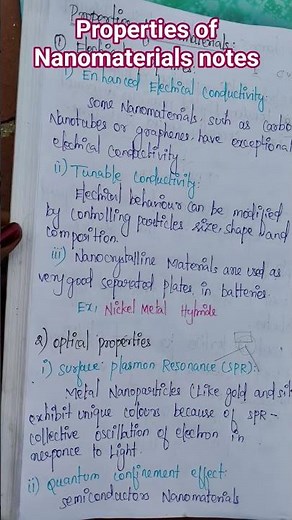 Properties of
Nanomaterials notes
Properties
i) Enhanced Electrical Conductivity:
some Nanomaterials, such as Carbo
Nanotubes or graphenes, have exceptional
electrical conductivity.
ii) Tunable conductivity:
Electrical behaviour can be modified
by controlling particles size, shape and
composition.
iii) Nanocrystalline Materials are used as
very good separated plates in batteries.
Ex: Nickel Metal Hydride
2) optical properties
i) Surface plasmon Resonance (SPR):
Metal Nanoparticles (Like gold and sil
exhibit unique colours because of SPR -
collective oscillation of electron in
response to Light.
ii) Quantum confinement effect:
semiconductors Nanomaterials